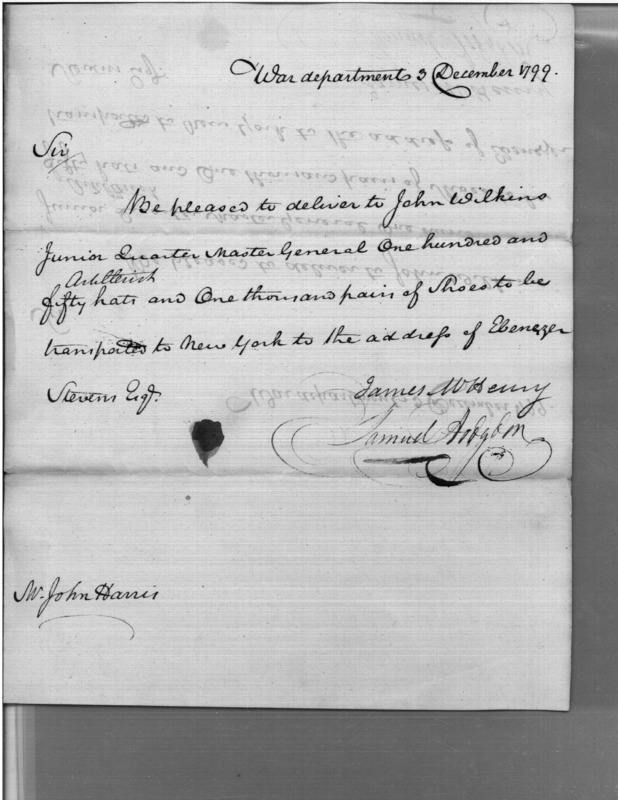 War department 3 December 1799.
Sir
Be pleased to deliver to John Wilkins
Junior Quarter Master General One hundred and
Artillerist
fifty hats and One thousand pairs of Shoes to be
transported to New York to the address of Ebenezer
Stevens Esqr.
James McHenry
Samuel Hodgdon
Mr. John Harris